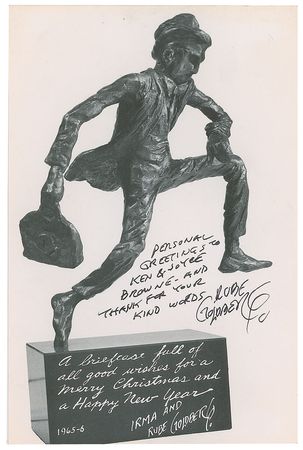 PERSONAL
GREETINGS TO
KEN & JOYCE
BROWNE - AND
THANK FOR YOUR
KIND WORDS
RUBE
GOLDBERG
A briefcase full of
all good wishes for a
Merry Christmas and
a Happy New Year
1965-6
IRMA AND
RUBE GOLDBERG